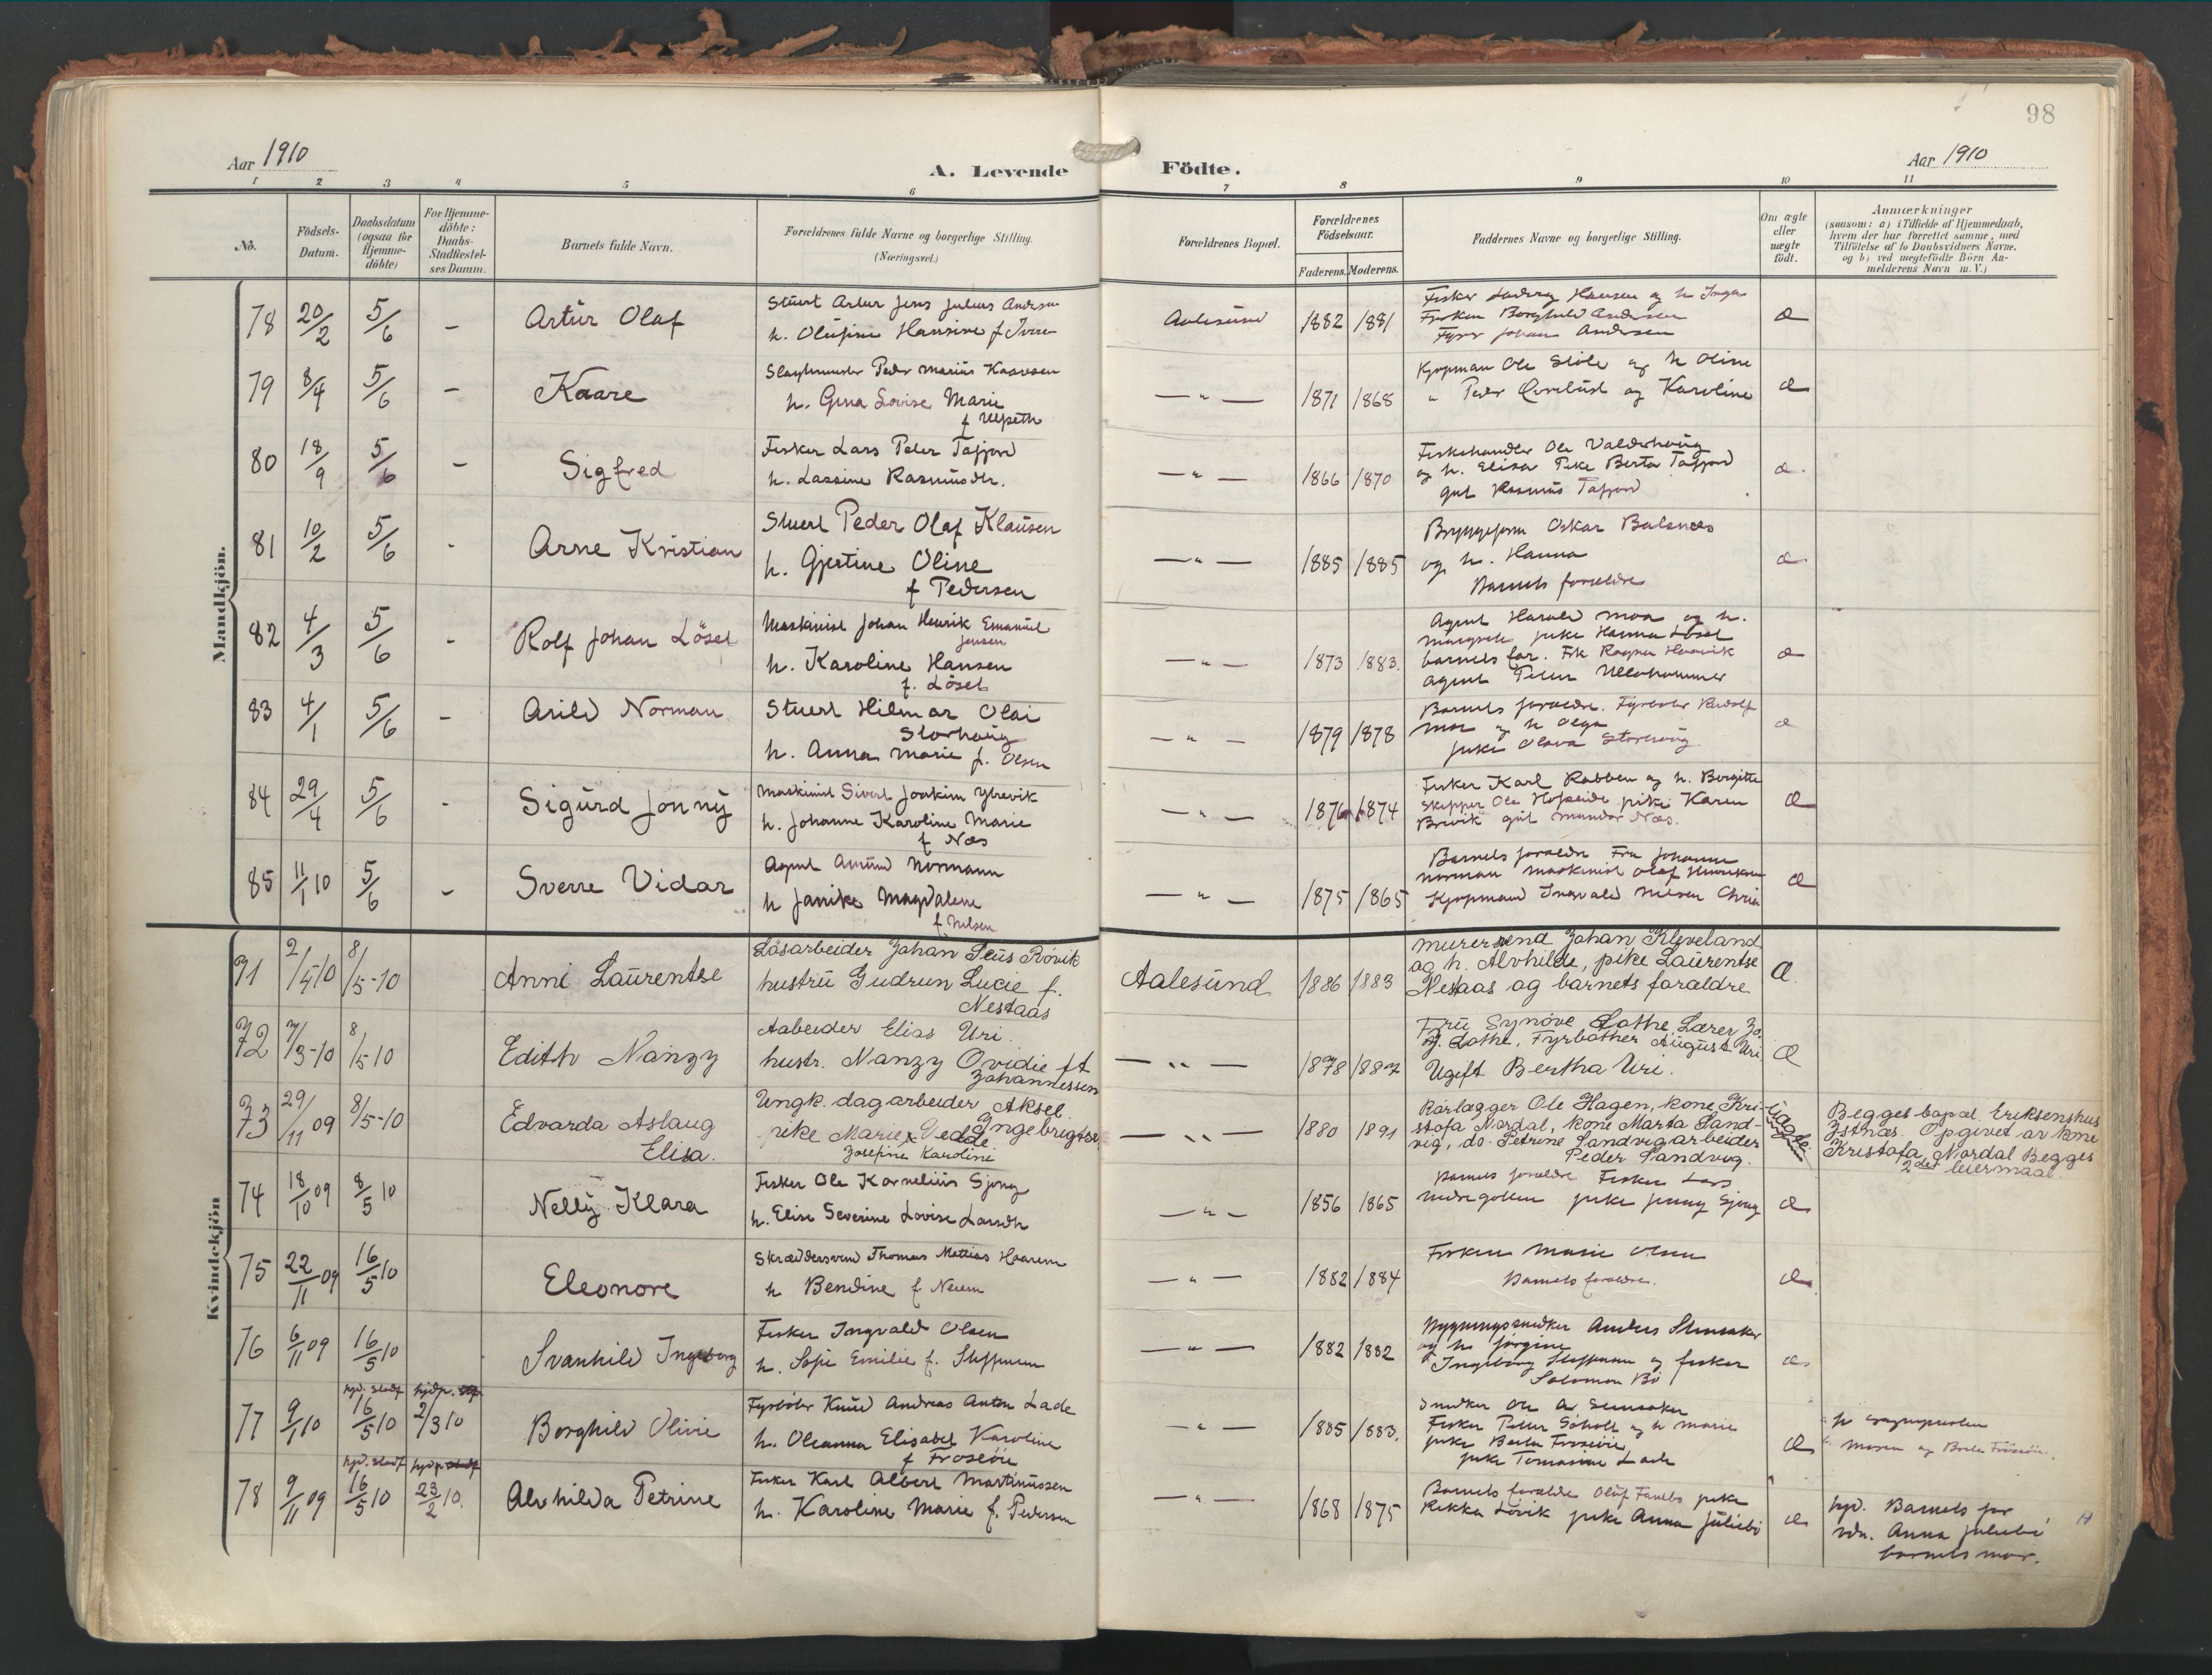 98
Aar 1910
A. Levende Födte.
Aar 1910
1 2 3 4 5 6 7 8 9 10 11
No.
Födsels-
Datum.
Daabsdatum
(ogsaa for
Hjemme-
döbte)
For Hjemme-
döbte:
Daabs-
Stadfæstel-
ses Datum.
Barnets fulde Navn.
Forældrenes fulde Navne og borgerlige Stilling.
(Næringsvei.)
Forældrenes Bopæl.
Forældrenes
Födselsaar.
Faderens. Moderens.
Faddernes Navne og borgerlige Stilling.
Om ægte
eller
uægte
födt.
Anmærkninger
(saasom: a) i Tilfælde af Hjemmedaab,
hvem der har forrettet samme, med
Tilföielse af to Daabsvidners Navne.
og b) ved uægtefödte Börn An-
melderens Navn m. V.)
Mandkjön.
78 20/2 5/6 - Artur Olaf
Stuert Artur Jens Julius Andersen
h. Olufine Hansine f Iversen
Aalesund 1882 1881
Fisker Ludvig Hansen og h Inga
Frøken Borghild Andersen
Fyrb Johan Andersen
æ
79 8/4 5/6 - Kaare
Peder Marius Kaarsen
h. Gina Lovise Marie
f Ulpeth
— " — 1871 1868
Kjøpman Ole Støle og h Oline
" Peder Qvrelust og Karoline
æ
80 18/9 5/6 - Sigfred
Fisker Lars Peter Tafjord
h. Lassine Rasmusdtr.
— " — 1866 1870
Fiskehandler Ole Valderhaug
og h. Elisa Pike Berta Tafjord
gut Rasmus Tafjord
æ
81 10/2 5/6 - Arne Kristian
Stuert Peder Olaf Klausen
h. Gjertine Oline
f Pedersen
— " — 1885 1885
Oskar Balsnes
og h. Hanna
Barnets forældre
æ
82 4/3 5/6 - Rolf Johan Lösel
Maskinist Johan Henrik Emanuel
Jensen
h. Karoline Hansen
f. Lösel
— " — 1873 1883.
Agent Harald Moa og h.
Margrete pike Hanna Lösel
barnets far. Frk Ragna Haavik
agent Peter Ullahammer
æ
83 4/1 5/6 - Arild Norman
Stuert Hilmar Olai
Storhaug
h. Anna Marie f. Olsen
— " — 1879 1878
Barnets forældre. Fyrbøter Rudolf
Moa og h Olga
pike Olava Storhaug
æ
84 29/4 5/6 - Sigurd Jonny
Maskinist Sivert Joakim Ytrevik
h. Johanne Karoline Marie
f Næs
— " — 1876 1874
Fisker Karl Rabben og h. Bergitte
Skipper Ole Hofseide pike Karen
Brevik gut Mandor Næs.
æ
85 11/1 10 5/6 - Sverre Vidar
Agent Amund Normann
h Janike Magdalene
f. Nilsen
— " — 1875 1865
Barnets forældre Fru Johanne
Norman Maskinist Olaf Henriksen
Kjøpmand Ingvald Nilsen
æ
Kvindekjön
71 2/4 10 8/5-10 Anni Laurentse
Løsarbeider Johan Peüs Rövik
hustru Gudrun Lucie f.
Nestaas
Aalesund 1886 1883
Murersvend Johan Kleveland
og h. Alvhilde, pike Laurentse
Nestaas og barnets forældre
Æ.
72 7/3-10 8/5-10 Edith Nanzy
Arbeider Elias Uri
hustr. Nanzy Ovidie f.
Johannessen
— " — 1878 1887
Fru Synöve Lothe Lærer Jo.
J. Lothe, Fyrböther August Uri
Ugift Bertha Uri.
Æ
73 29/11 09 8/5-10 Edvarda Aslaug
Elisa.
Ungk. dagarbeider Aksel
Ingebrigtsen
pike Marie Vedde
Josefine Karolini
— " — 1880 1891
Rörlægger Ole Hagen, kone Kri-
stofa Nordal, kone Marta Sand-
vig, do. Petrine Sandvig arbeider
Peder Sandvig.
Uægte
Begges bopæl Eriksenshus
Ystnæs. Opgivet av kone
Kristofa Nordal Begges
2det leiermaal.
74 18/10 09 8/5 10 Nelly Klara
Fisker Ole Kornelius Sjong
h. Elise Severine Lovise Larsdtr
— " — 1856 1865
Barnets forældre Fisker Lars
Nedregotten pike Jenny Sjong
æ
75 22/11 09 16/5 10 Eleonore
Skræddersvend Thomas Mattias Haarem
h Bendine f Nerem
— " — 1882 1884
Frøken Marie Olsen
Barnets forældre.
æ
76 6/11 09 16/5 10 Svanhild Ingeborg
Fisker Ingvald Olsen
h. Sofie Emilie f. Steffensen
— " — 1882 1882
Bygningssnedker Anders Stensaker
og h. Jørgine
Ingeborg Steffensen og fisker
Salomon Bö
æ
77 9/1 10 hjd. stadf 16/5 10 hjdp. 2/3 10 Borghild Olivie
Fyrbøter Knud Andreas Anton Lade
h. Oleanna Elisabet Karoline
f Frøseöie
— " — 1885 1883.
Snedker Ole A. Stensaker
Fisker Petter Söholt og h Marie
pike Berta Frøseöie
pike Tomasine Lade
æ
moren og Berta Frøseöie.
78 9/11 09 hjd. stadf 16/5 10 hjdp. 23/2 10. Alvhilda Petrine
Fisker Karl Albert Martinussen
h. Karoline Marie f. Pedersen
— " — 1868 1875
Barnets forældre Oluf pike
Rikka Lövik pike Anna Juliebö
æ
hjd. Barnets far
vdn. Anna Juliebö
barnets mor.